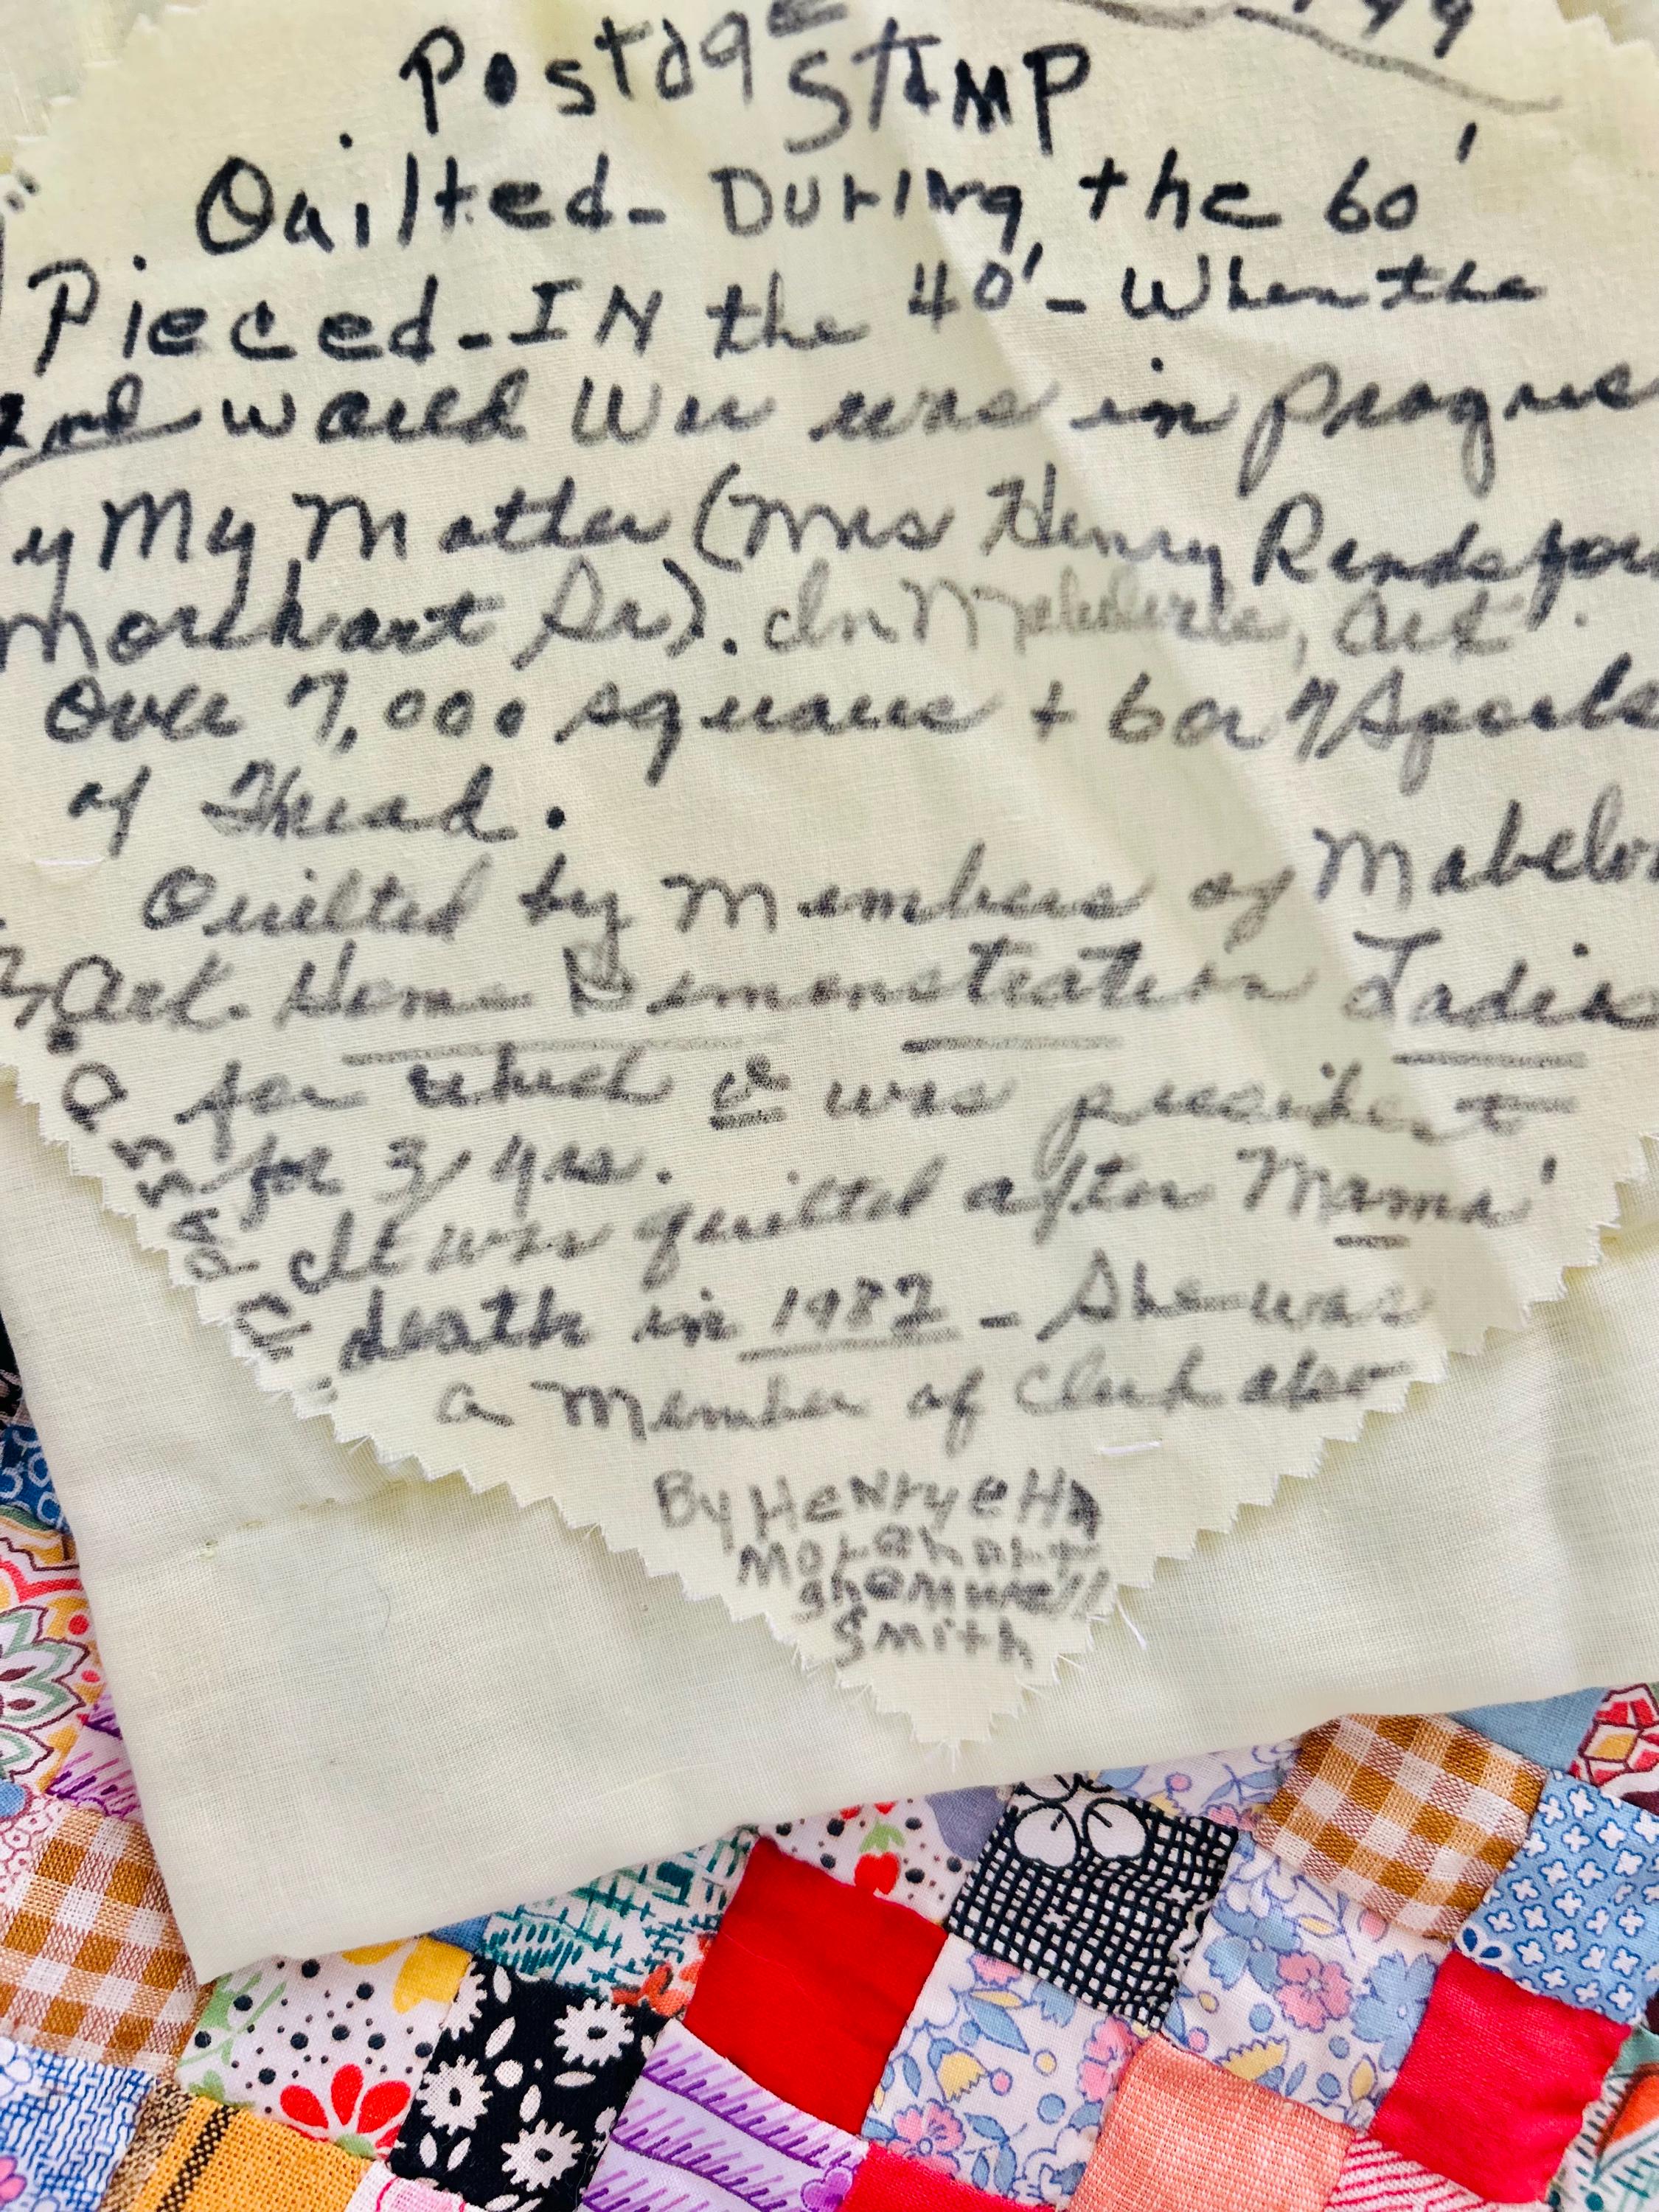 99
Postage Stamp
Quilted- During the 60'
Pieced-IN the 40'- When the
2nd World War was in progres
y My Mother (Mrs Henry
Morehart Sr). In Ark.
Over 7,000 squares + 6 or 7 Spools
of Thread.
Quilted by Members of
Ark. Home Demonstration Ladies
for which I was president
for 3/4 yrs.
It was quilted after Mama'
death in 1982 - She was
a Member of Club also
By Henryetta
Morehart
Shemwell
Smith